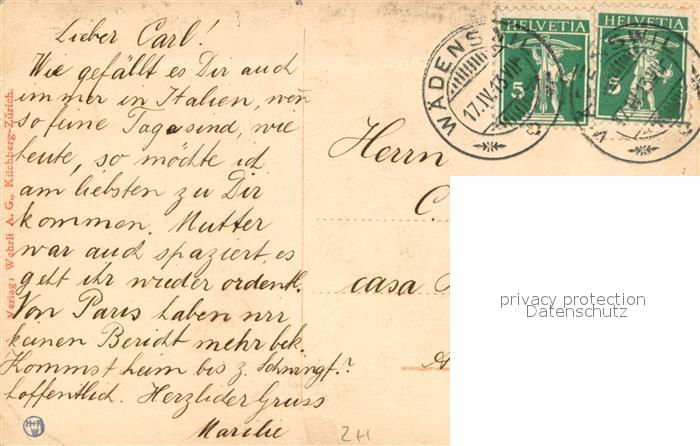 Lieber Carl!
Wie gefällt es Dir auch
immer in Italien, wen̄
so feine Tage sind, wie
heute, so möchte ich
am liebsten zu Dir
kommen. Mutter
war auch spaziert, es
geht ihr wieder ordentl.
Von Paris haben wir
keinen Bericht mehr bek.
Kommst heim bis z.
hoffentlich. Herzlicher Gruss
Verlag: Wehrli A. G., Kilchberg-Zürich.
HELVETIA
5
HELVETIA
5
WÄDENSWIL
17.IV.13
Herrn
C.
casa
privacy protection
Datenschutz
2H